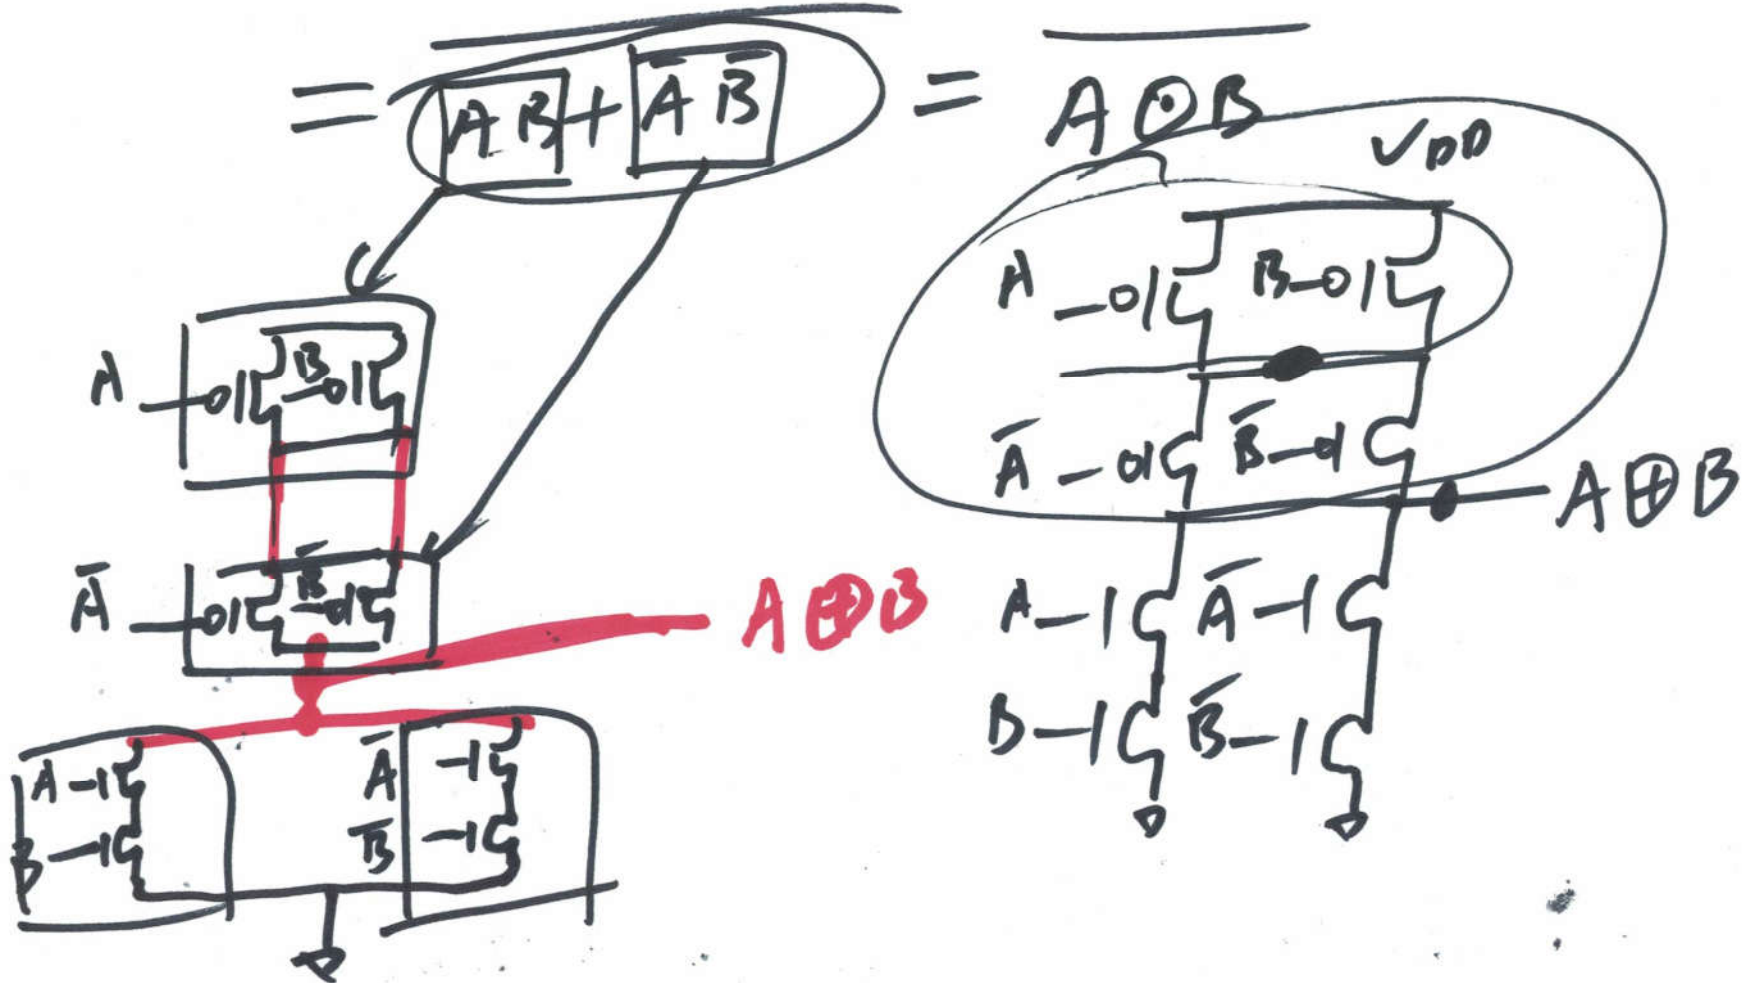 = \overline{AB + \overline{A}\,\overline{B}} = \overline{A ⊙ B}
VDD
A B
A B
A̅ B̅
A̅ B̅ A⊕B
A⊕B
A A̅
A A̅
B B̅
B B̅